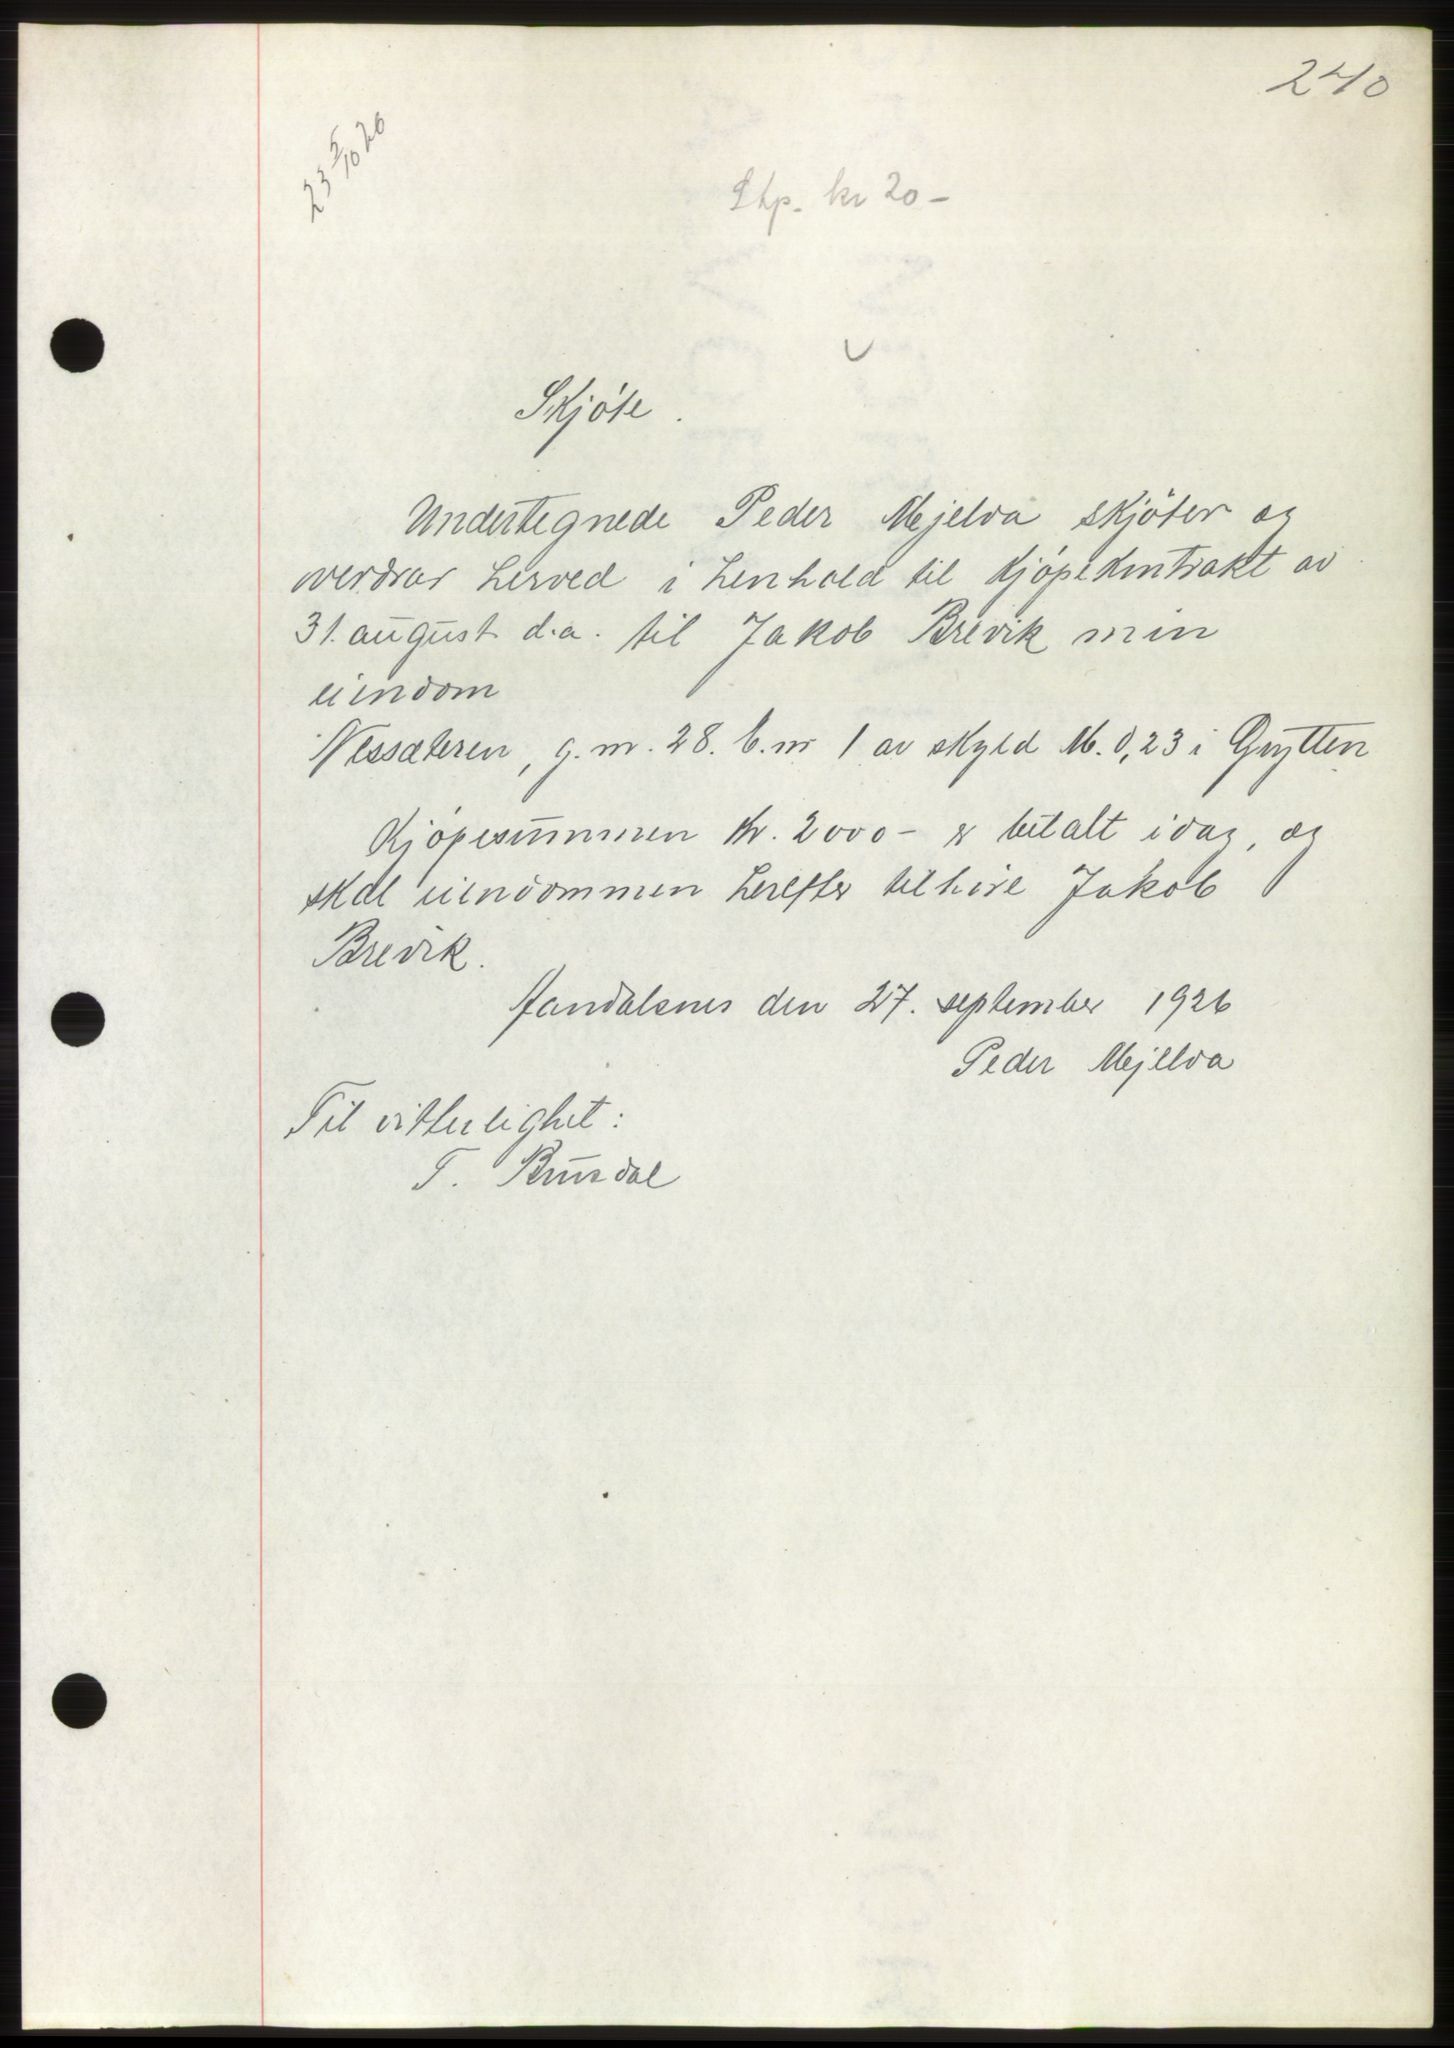 240
23 5/10 26
Stp. kr 20 -
Skjöte.
Undertegnede Peder Mjelva skjöter og
overdrar herved i henhold til kjöpekontrakt av
31. august d.a. til Jakob Brevik min
eiendom
Nessæteren, g.nr. 28. b.nr 1 av skyld M. 0,23 i Grytten
Kjöpesummen kr. 2000 - er betalt idag, og
skal eiendommen herefter tilhöre Jakob
Brevik.
Aandalsnes den 27. september 1926
Peder Mjelva
Til vitterlighet:
T. Brusdal